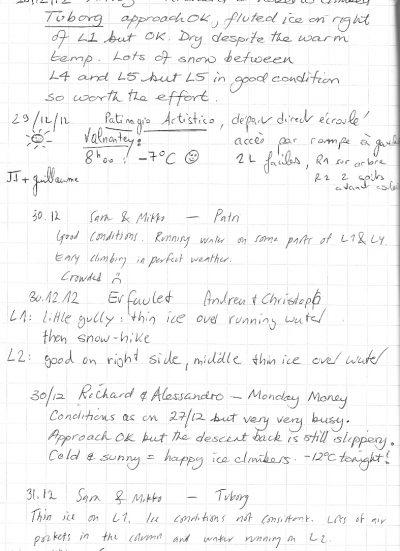 Tuborg approach OK, fluted ice on right
of L1 but OK. Dry despite the warm
temp. Lots of snow between
L4 and L5 but L5 in good condition
so worth the effort.
29/12/12 Patinagio Artistico, départ direct écroulé
Valnontey: accès par rampe à
8h00: -7°C 2L faciles, R1 sur arbre
JJ + guillaume R2 2 spits
avant
30.12 Sara & Mikko — Patri
Good conditions. Running water on some parts of L1 & L4.
Easy climbing in perfect weather.
Crowded
30.12.12 Erfaulet Andrea & Christoph
L1: little gully: thin ice over running water
then snow-hike
L2: good on right side, middle thin ice over water
30/12 Richard & Alessandro — Monday Money
Conditions as on 27/12 but very very busy.
Approach OK but the descent back is still slippery.
Cold & sunny = happy ice climbers. -12°C tonight!
31.12 Sara & Mikko — Tuborg
Thin ice on L1. Ice conditions not consistent. Lots of air
pockets in the column and water running on L2.